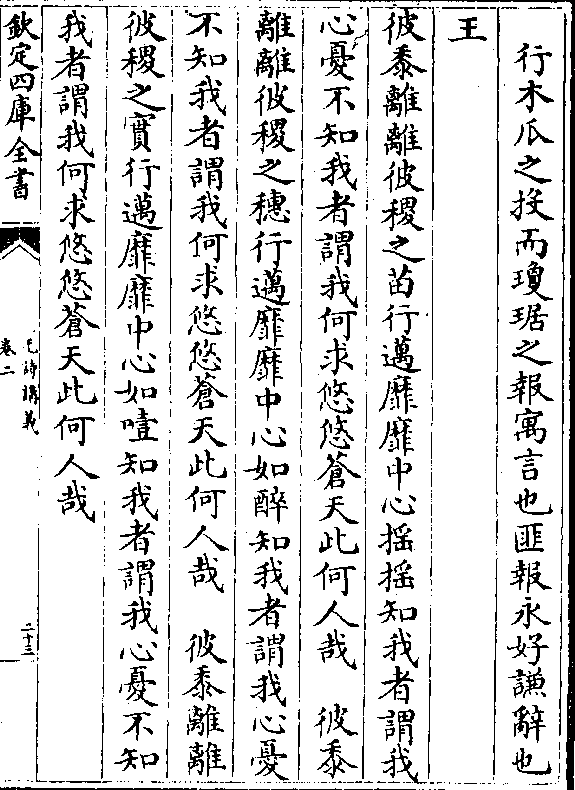 行木瓜之投而瓊琚之報寓言也匪報永好謙辭也
王
彼黍離離彼稷之苗行邁靡靡中心揺揺知我者謂我
心憂不知我者謂我何求悠悠蒼天此何人哉　彼黍
離離彼稷之穗行邁靡靡中心如醉知我者謂我心憂
不知我者謂我何求悠悠蒼天此何人哉　彼黍離離
彼稷之實行邁靡靡中心如噎知我者謂我心憂不知
我者謂我何求悠悠蒼天此何人哉
欽定四庫全書
毛詩講義
卷二
二十三